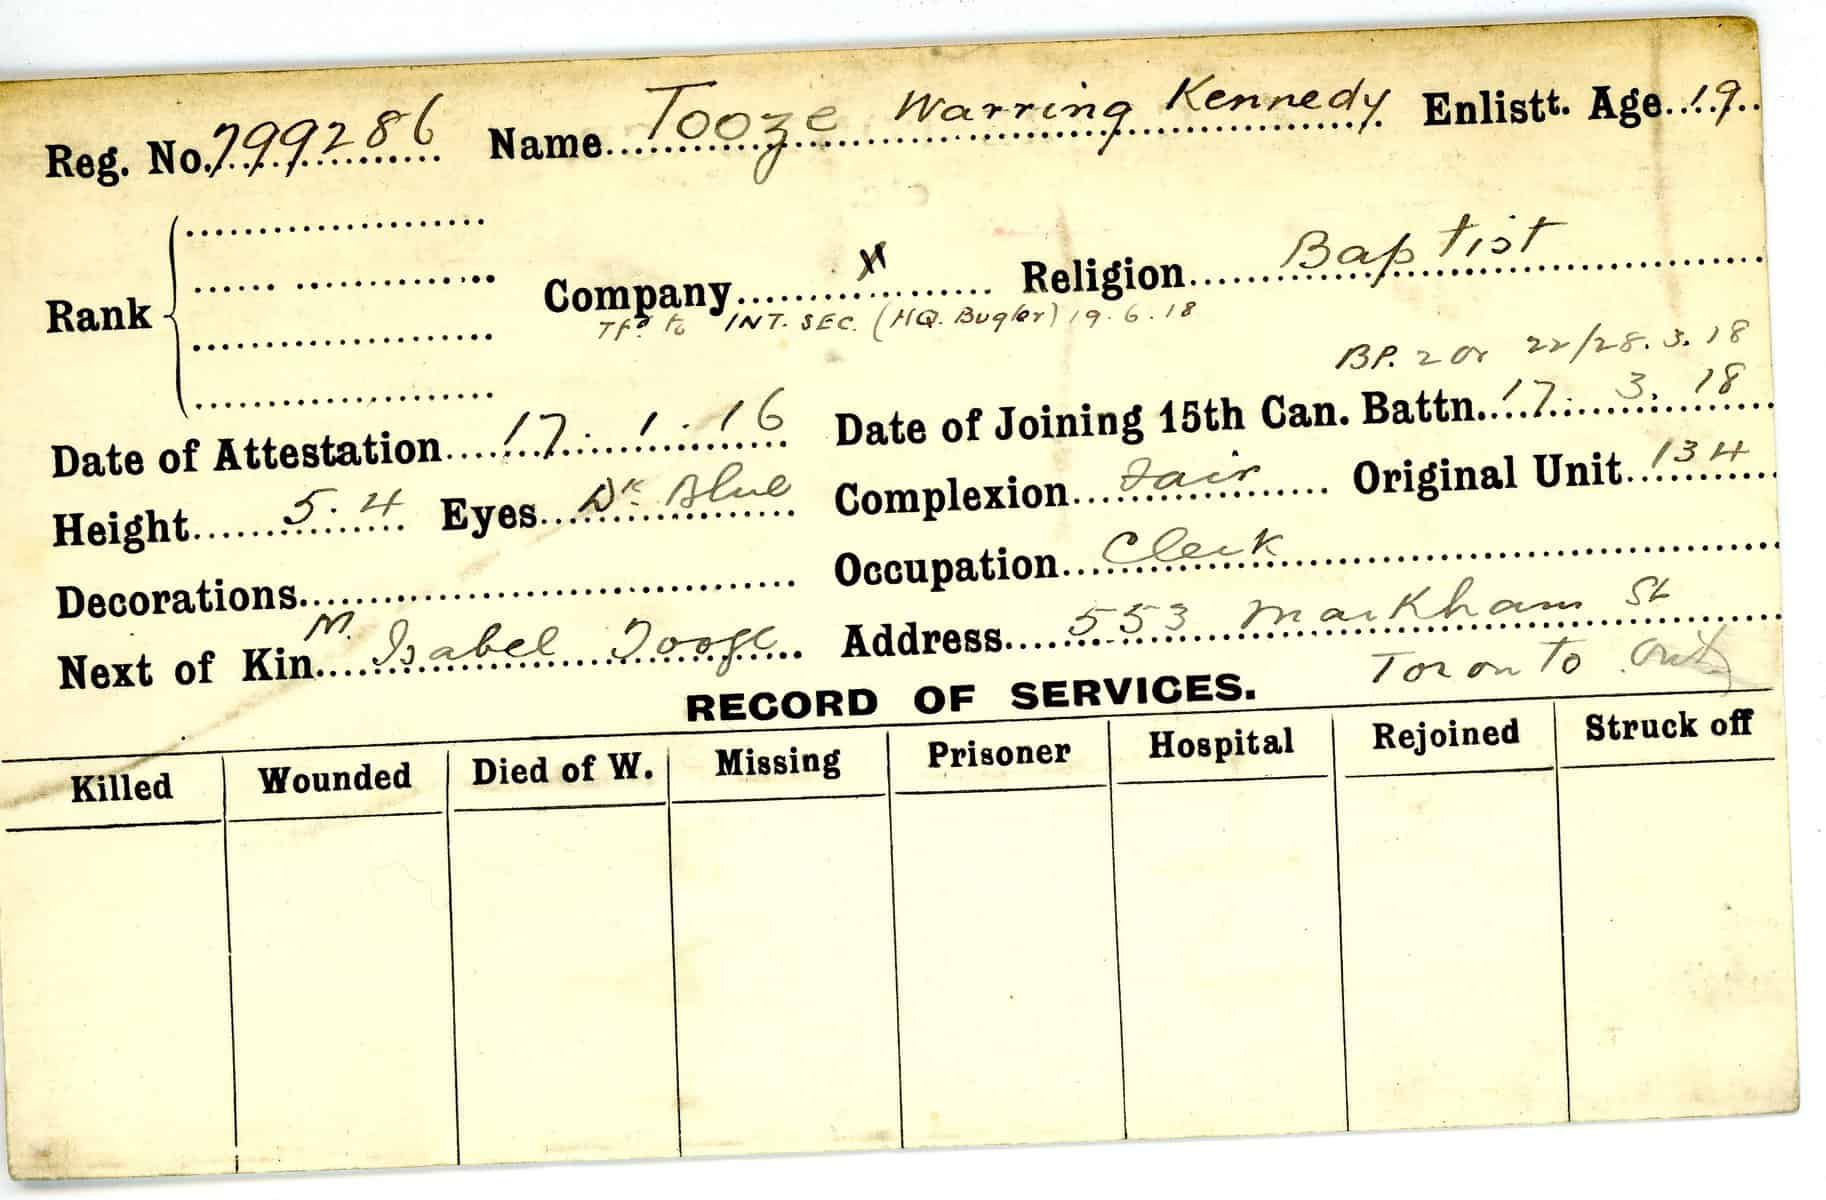 Reg. No. 799286 Name Tooze Warring Kennedy Enlistt. Age 19
Rank Company Religion Baptist
Tfd to INT. SEC. (HQ. Bugler) 19.6.18
BP. 2 or 22/28.3.18
Date of Attestation 17.1.16 Date of Joining 15th Can. Battn. 17.3.18
Height 5.4 Eyes Dk. Blue Complexion Fair Original Unit 134
Decorations Occupation Clerk
Next of Kin M. Isabel Tooze Address 553 Markham St
Toronto Ont
RECORD OF SERVICES.
Killed Wounded Died of W. Missing Prisoner Hospital Rejoined Struck off